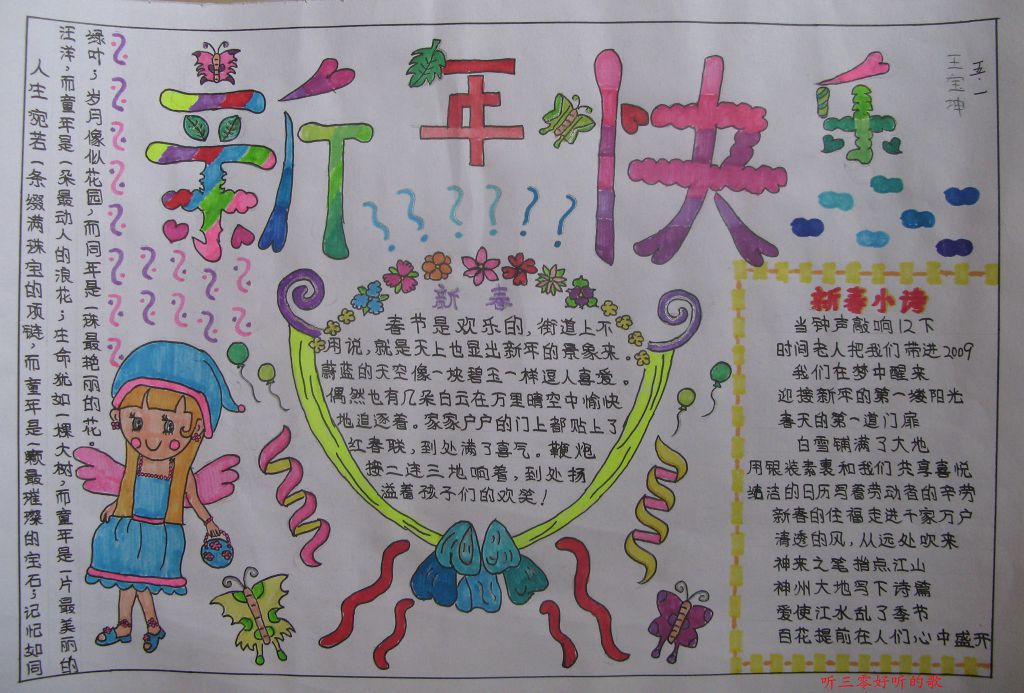 新年快乐
五.一
王宝坤
人生宛若一条缀满珠宝的项链,而童年是一颗最璀璨的宝石;记忆如同
汪洋,而童年是一朵最动人的浪花;生命犹如一棵大树,而童年是一片最美丽的
绿叶;岁月像似花园,而同年是一珠最艳丽的花。
新春
春节是欢乐的,街道上不
用说,就是天上也显出新年的景象来。
蔚蓝的天空像一块碧玉一样逗人喜爱。
偶然也有几朵白云在万里晴空中愉快
地追逐着。家家户户的门上都贴上了
红春联,到处满了喜气。鞭炮
接二连三地响着,到处扬
溢着孩子们的欢笑!
新春小诗
当钟声敲响12下
时间老人把我们带进2009
我们在梦中醒来
迎接新年的第一缕阳光
春天的第一道门扉
白雪铺满了大地
用银装素裹和我们共享喜悦
洁的日历写着劳动者的辛劳
新春的佳福走进千家万户
清透的风,从远处吹来
神来之笔指点江山
神州大地写下诗篇
爱使江水乱了季节
百花提前在人们心中盛开
听三零好听的歌